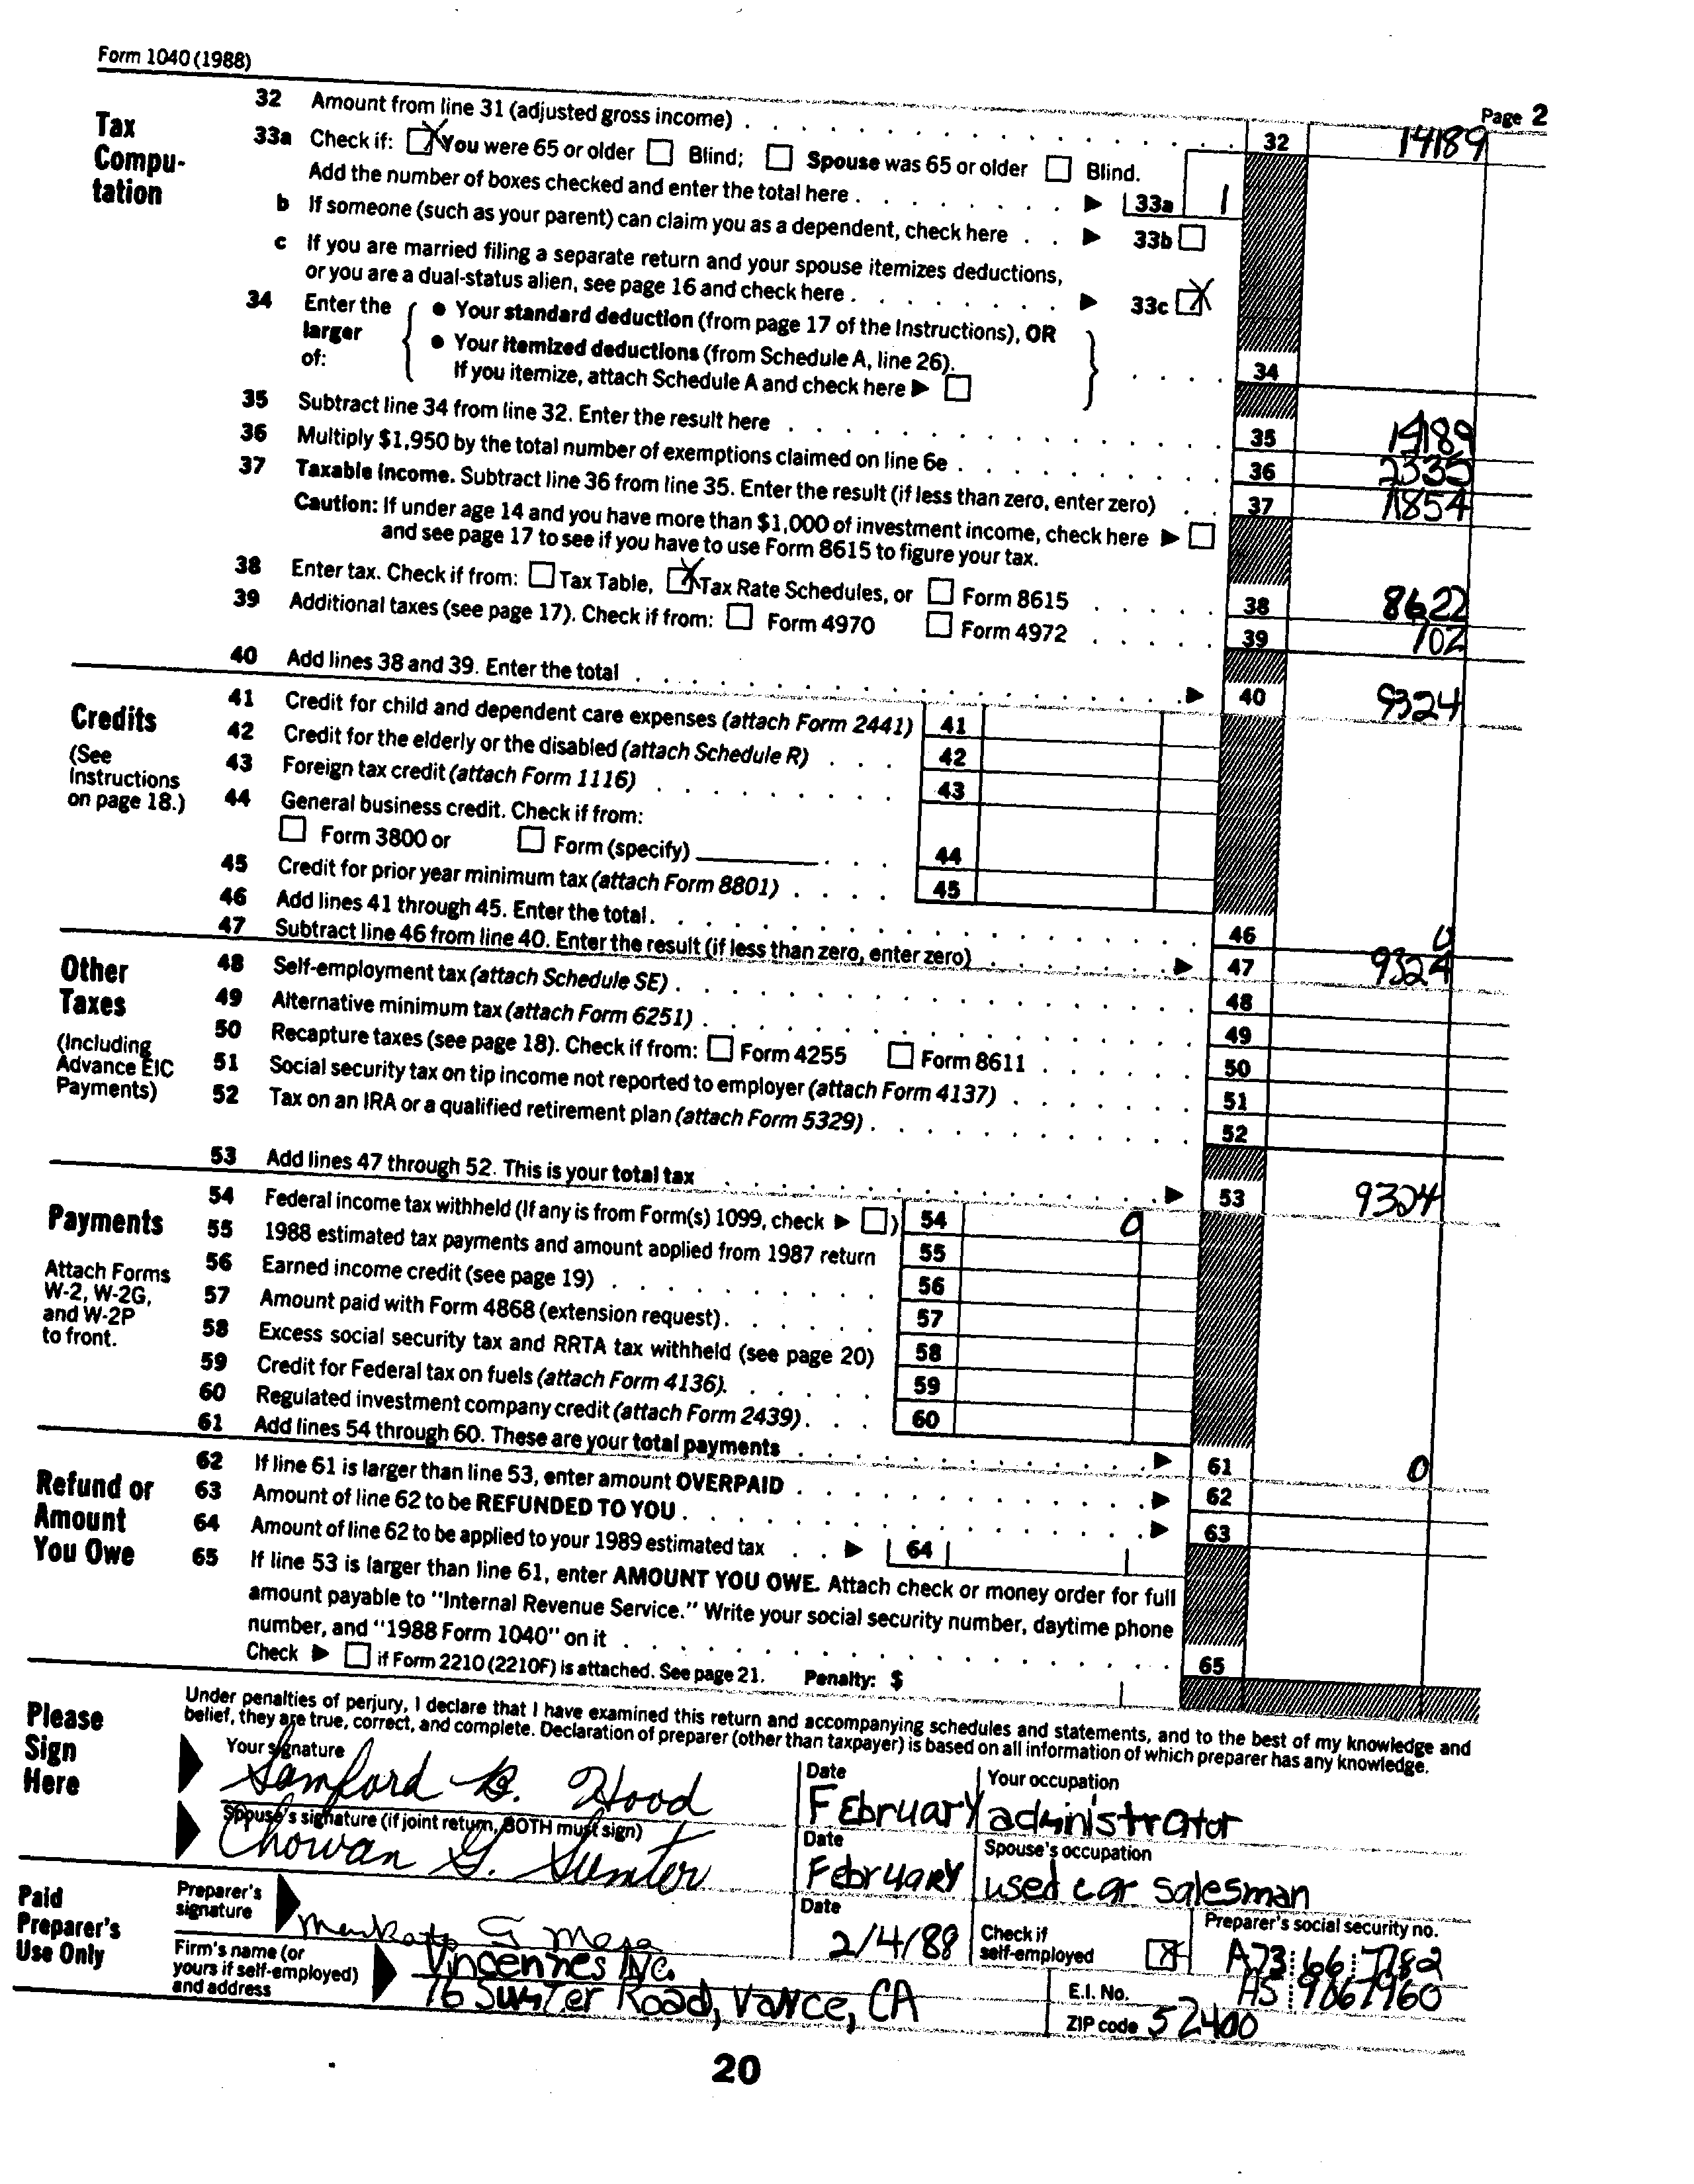 Form 1040 (1988)
Page 2
Tax Compu-tation
32 Amount from line 31 (adjusted gross income) 32 14189
33a Check if: [X] You were 65 or older [ ] Blind; [ ] Spouse was 65 or older [ ] Blind.
Add the number of boxes checked and enter the total here ▶ 33a 1
b If someone (such as your parent) can claim you as a dependent, check here ▶ 33b [ ]
c If you are married filing a separate return and your spouse itemizes deductions,
or you are a dual-status alien, see page 16 and check here ▶ 33c [X]
34 Enter the larger of:
• Your standard deduction (from page 17 of the Instructions), OR
• Your itemized deductions (from Schedule A, line 26).
If you itemize, attach Schedule A and check here ▶ [ ] 34
35 Subtract line 34 from line 32. Enter the result here 35 14189
36 Multiply $1,950 by the total number of exemptions claimed on line 6e 36 2335
37 Taxable income. Subtract line 36 from line 35. Enter the result (if less than zero, enter zero) 37 11854
Caution: If under age 14 and you have more than $1,000 of investment income, check here ▶ [ ]
and see page 17 to see if you have to use Form 8615 to figure your tax.
38 Enter tax. Check if from: [ ] Tax Table, [X] Tax Rate Schedules, or [ ] Form 8615 38 8622
39 Additional taxes (see page 17). Check if from: [ ] Form 4970 [ ] Form 4972 39 702
40 Add lines 38 and 39. Enter the total ▶ 40 9324
Credits
(See Instructions on page 18.)
41 Credit for child and dependent care expenses (attach Form 2441) 41
42 Credit for the elderly or the disabled (attach Schedule R) 42
43 Foreign tax credit (attach Form 1116) 43
44 General business credit. Check if from:
[ ] Form 3800 or [ ] Form (specify) 44
45 Credit for prior year minimum tax (attach Form 8801) 45
46 Add lines 41 through 45. Enter the total. 46 0
47 Subtract line 46 from line 40. Enter the result (if less than zero, enter zero) ▶ 47 9324
Other Taxes
(Including Advance EIC Payments)
48 Self-employment tax (attach Schedule SE) 48
49 Alternative minimum tax (attach Form 6251) 49
50 Recapture taxes (see page 18). Check if from: [ ] Form 4255 [ ] Form 8611 50
51 Social security tax on tip income not reported to employer (attach Form 4137) 51
52 Tax on an IRA or a qualified retirement plan (attach Form 5329) 52
53 Add lines 47 through 52. This is your total tax ▶ 53 9324
Payments
Attach Forms W-2, W-2G, and W-2P to front.
54 Federal income tax withheld (If any is from Form(s) 1099, check ▶ [ ]) 54 0
55 1988 estimated tax payments and amount applied from 1987 return 55
56 Earned income credit (see page 19) 56
57 Amount paid with Form 4868 (extension request) 57
58 Excess social security tax and RRTA tax withheld (see page 20) 58
59 Credit for Federal tax on fuels (attach Form 4136). 59
60 Regulated investment company credit (attach Form 2439) 60
61 Add lines 54 through 60. These are your total payments ▶ 61 0
Refund or Amount You Owe
62 If line 61 is larger than line 53, enter amount OVERPAID ▶ 62
63 Amount of line 62 to be REFUNDED TO YOU ▶ 63
64 Amount of line 62 to be applied to your 1989 estimated tax ▶ 64
65 If line 53 is larger than line 61, enter AMOUNT YOU OWE. Attach check or money order for full
amount payable to "Internal Revenue Service." Write your social security number, daytime phone
number, and "1988 Form 1040" on it 65
Check ▶ [ ] if Form 2210 (2210F) is attached. See page 21. Penalty: $
Please Sign Here
Under penalties of perjury, I declare that I have examined this return and accompanying schedules and statements, and to the best of my knowledge and
belief, they are true, correct, and complete. Declaration of preparer (other than taxpayer) is based on all information of which preparer has any knowledge.
Your signature Samford B. Hood
Date February
Your occupation administrator
Spouse's signature (if joint return, BOTH must sign) Chowan G. Sumter
Date February
Spouse's occupation used car salesman
Paid Preparer's Use Only
Preparer's signature Mesa
Date 2/4/88
Check if self-employed [X]
Preparer's social security no. A73 66 7782
Firm's name (or yours if self-employed) and address
Vincennes INC.
76 Sumter Road, Vance, CA
E.I. No. HS 9867960
ZIP code 52400
20